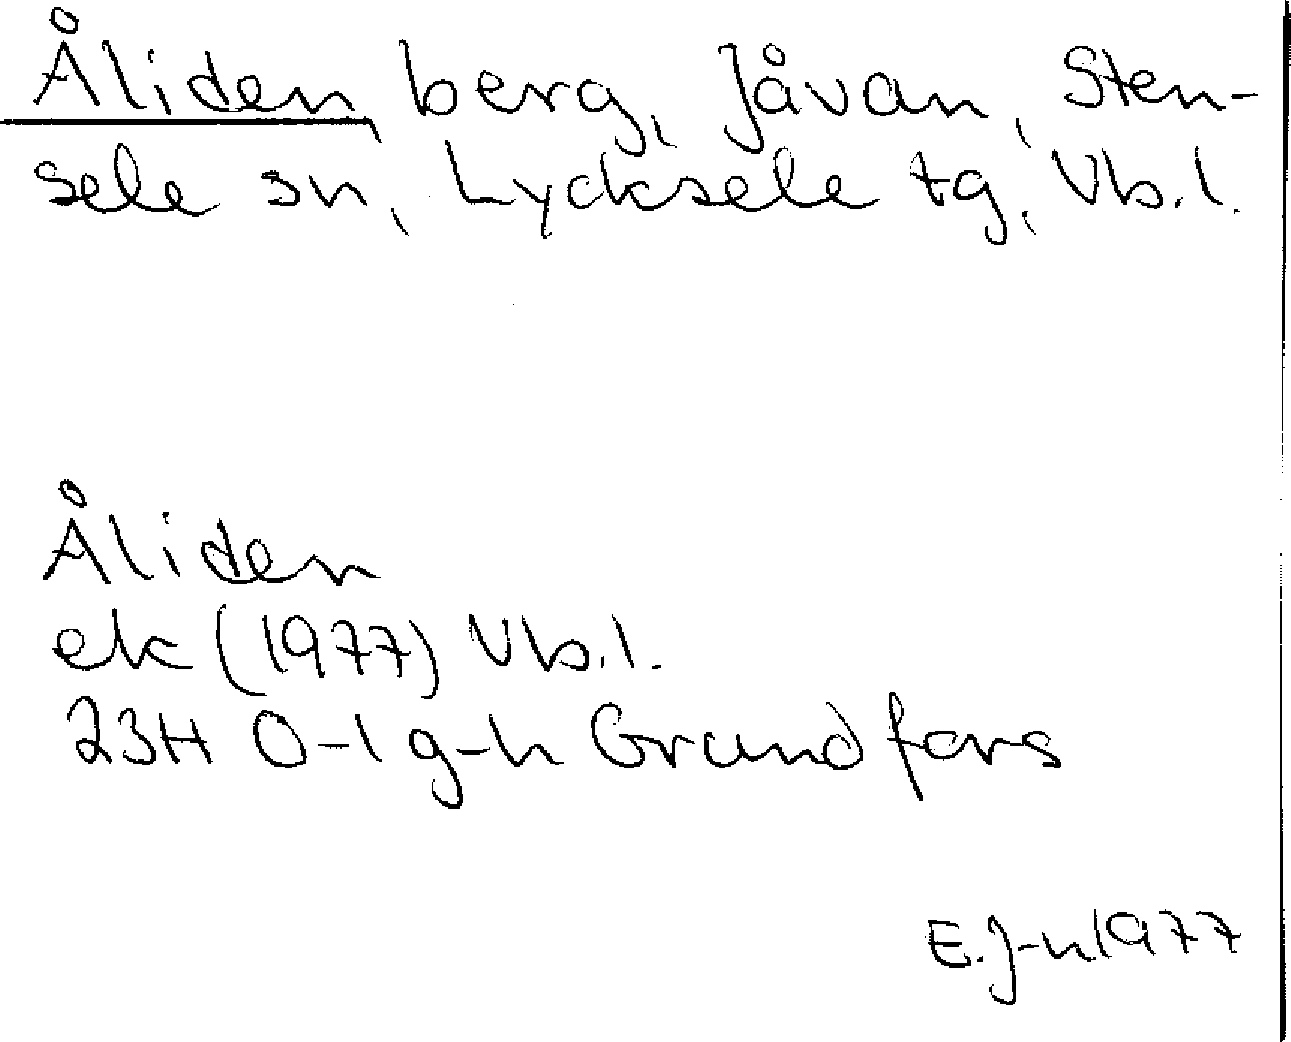 Åliden, berg, Jåvan, Sten-
sele sn, Lycksele tg, Vb.l.
Åliden
ek (1977) Vb.l.
23H 0-1 g-h Grundfors
E.J-n 1977